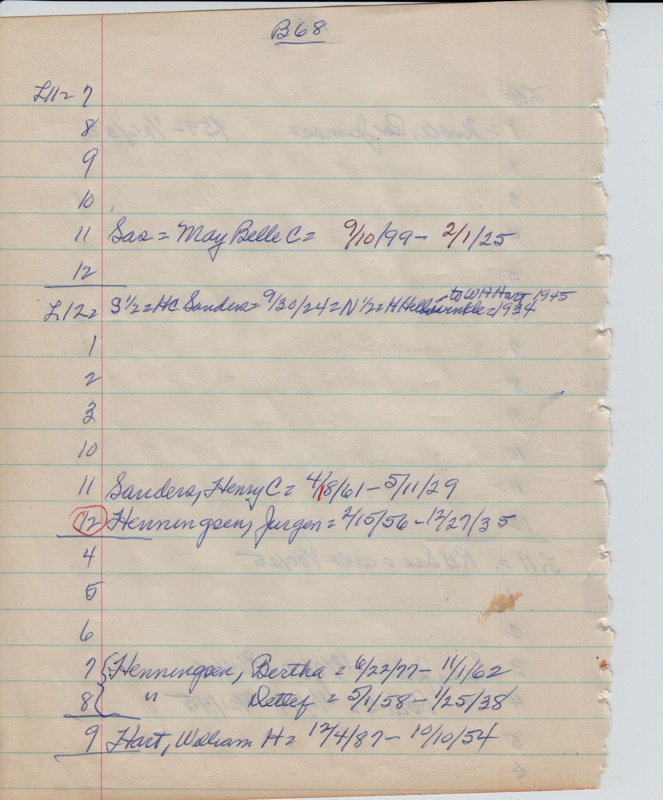 B68
L11= 7
8
9
10
11 Sas = May Belle C = 9/10/99 - 2/1/25
12
to WH Hart 1945
L12 = S 1/2 = HC Sanders = 9/30/24 = N 1/2 = H = 1934
1
2
3
10
11 Sanders, Henry C = 4/18/61 - 5/11/29
12 Henningsen, Jurgen = 2/15/56 - 12/27/35
4
5
6
7 { Henningsen, Bertha = 6/22/77 - 11/1/62
8 { " Detlef = 5/1/58 - 1/25/38
9 Hart, William H = 12/4/87 - 10/10/54